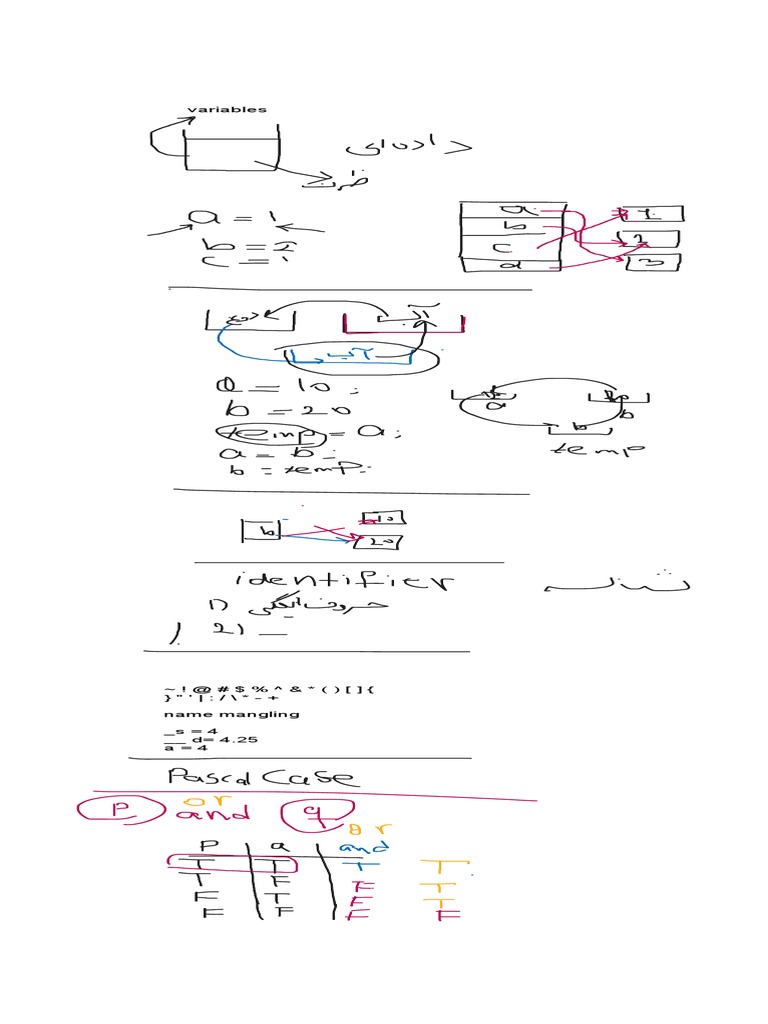 variables
داده‌ای
ظرف
a = 1
b = 2
c = 1
a 1
b 2
c 3
d
دوغ آب
آب
a = 10 ;
b = 20
temp = a ;
a = b ;
b = temp ;
a b
b
temp
b 10
20
identifier
1) حروف انگلیسی
2) _
~ ! @ # $ % ^ & * ( ) [ ] {
} " ' | : / \ * - +
name mangling
_s = 4
__d= 4.25
a = 4
Pascal Case
or
P and q
or
P q and
T T T T
T F F T
F T F T
F F F F